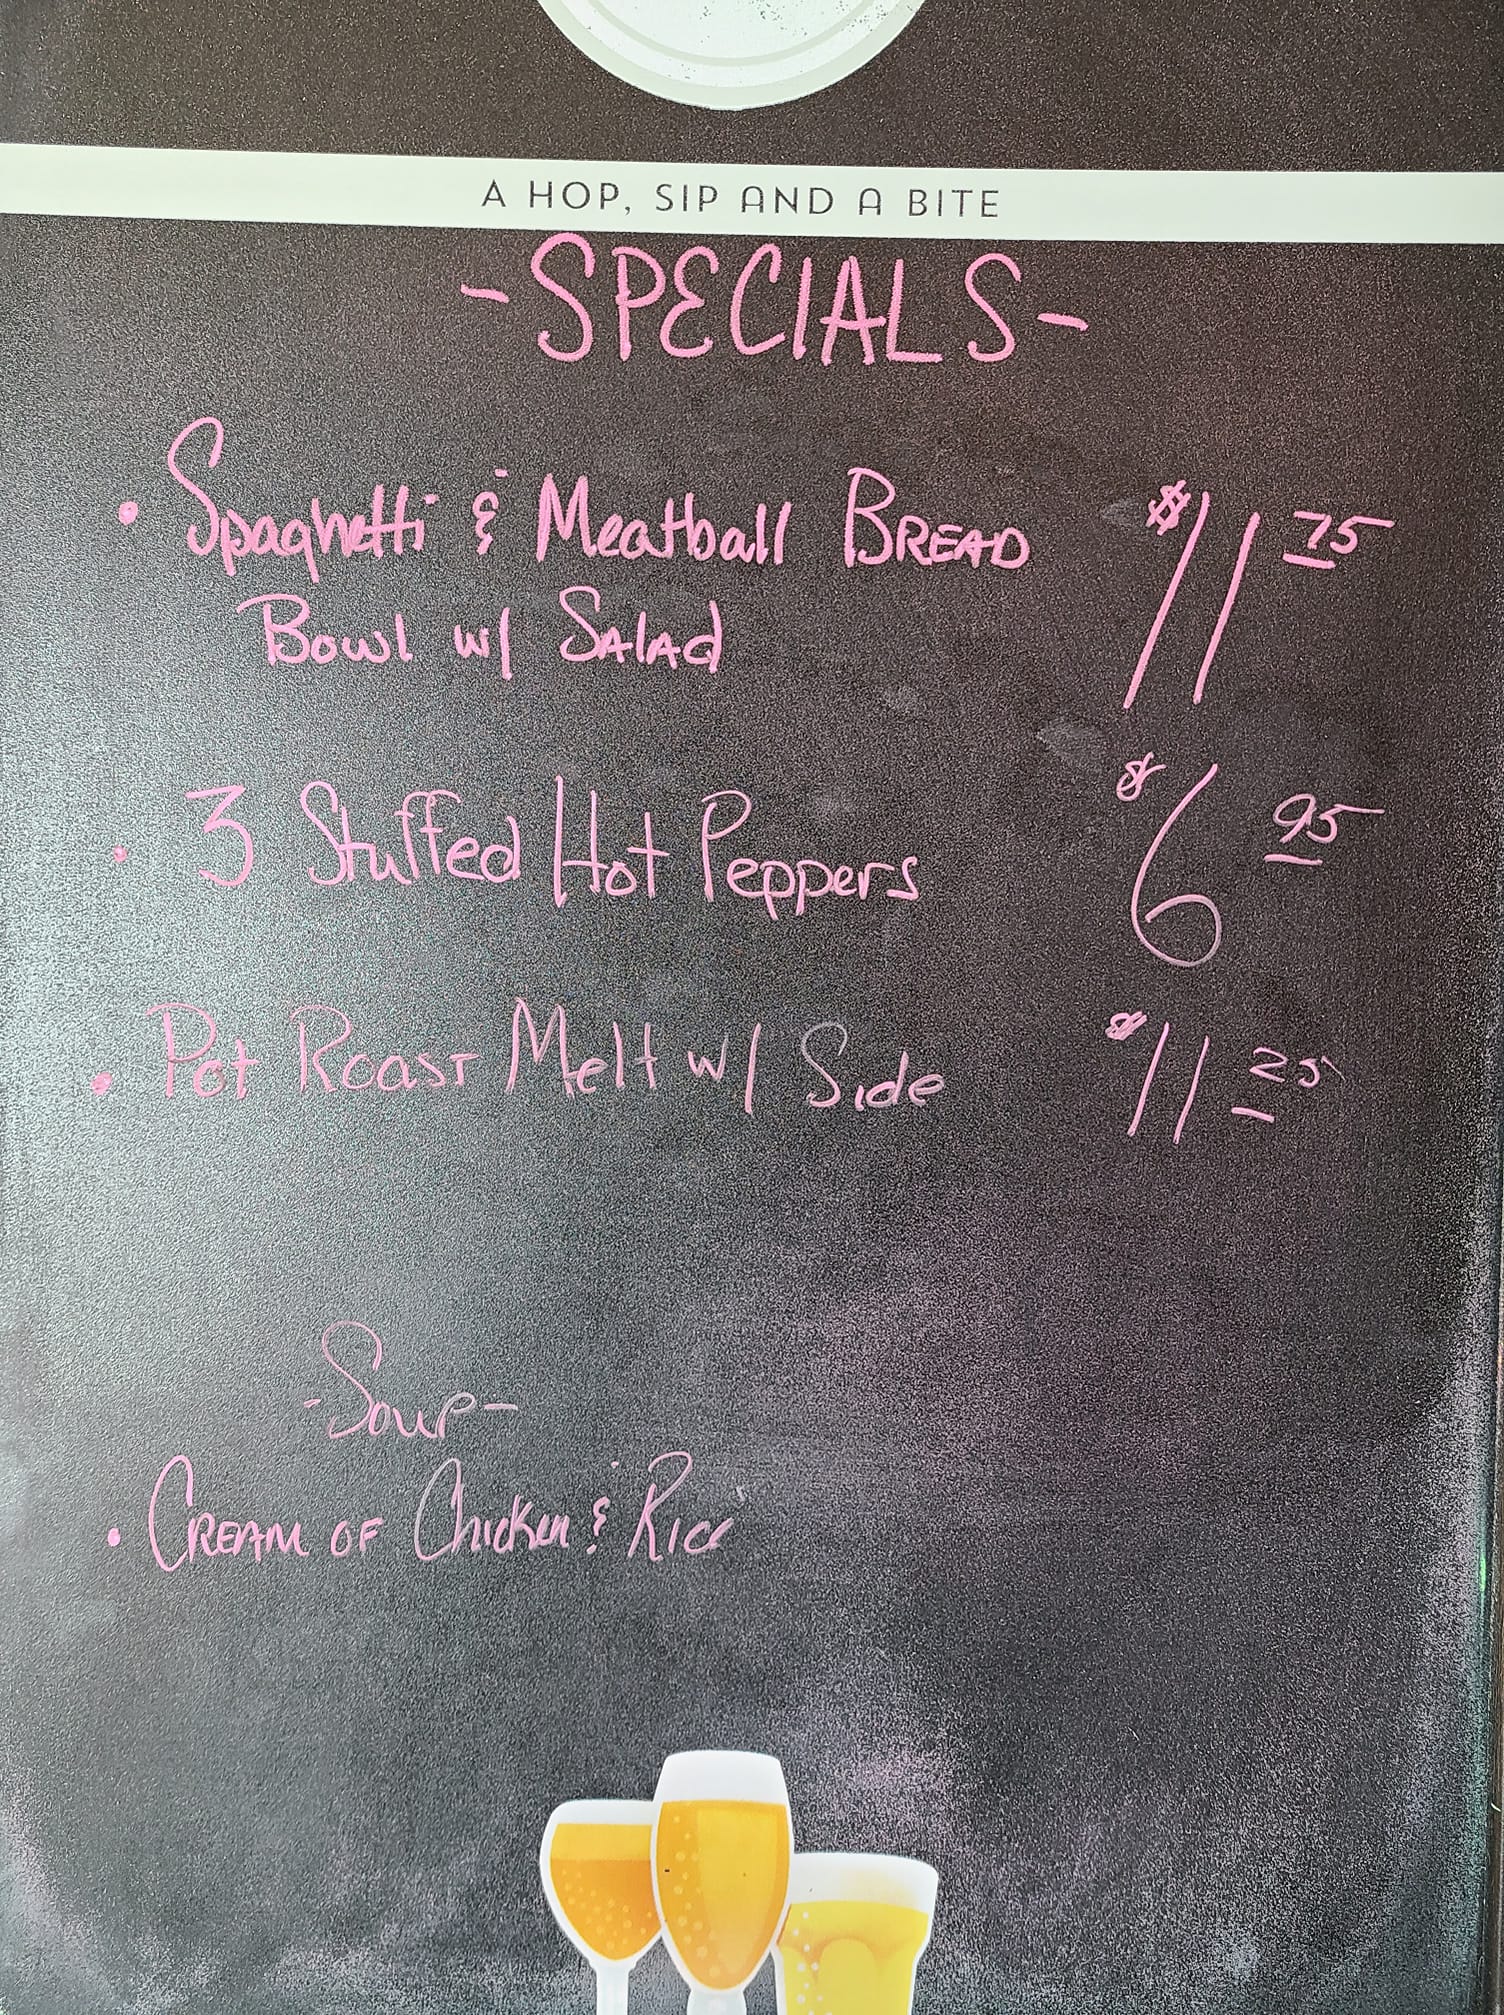 A HOP, SIP AND A BITE
-SPECIALS-
• Spaghetti & Meatball BREAD $11 75
Bowl w/ Salad
• 3 Stuffed Hot Peppers $6 95
• Pot Roast Melt w/ Side $11 25
-Soup-
• CREAM OF Chicken & Rice